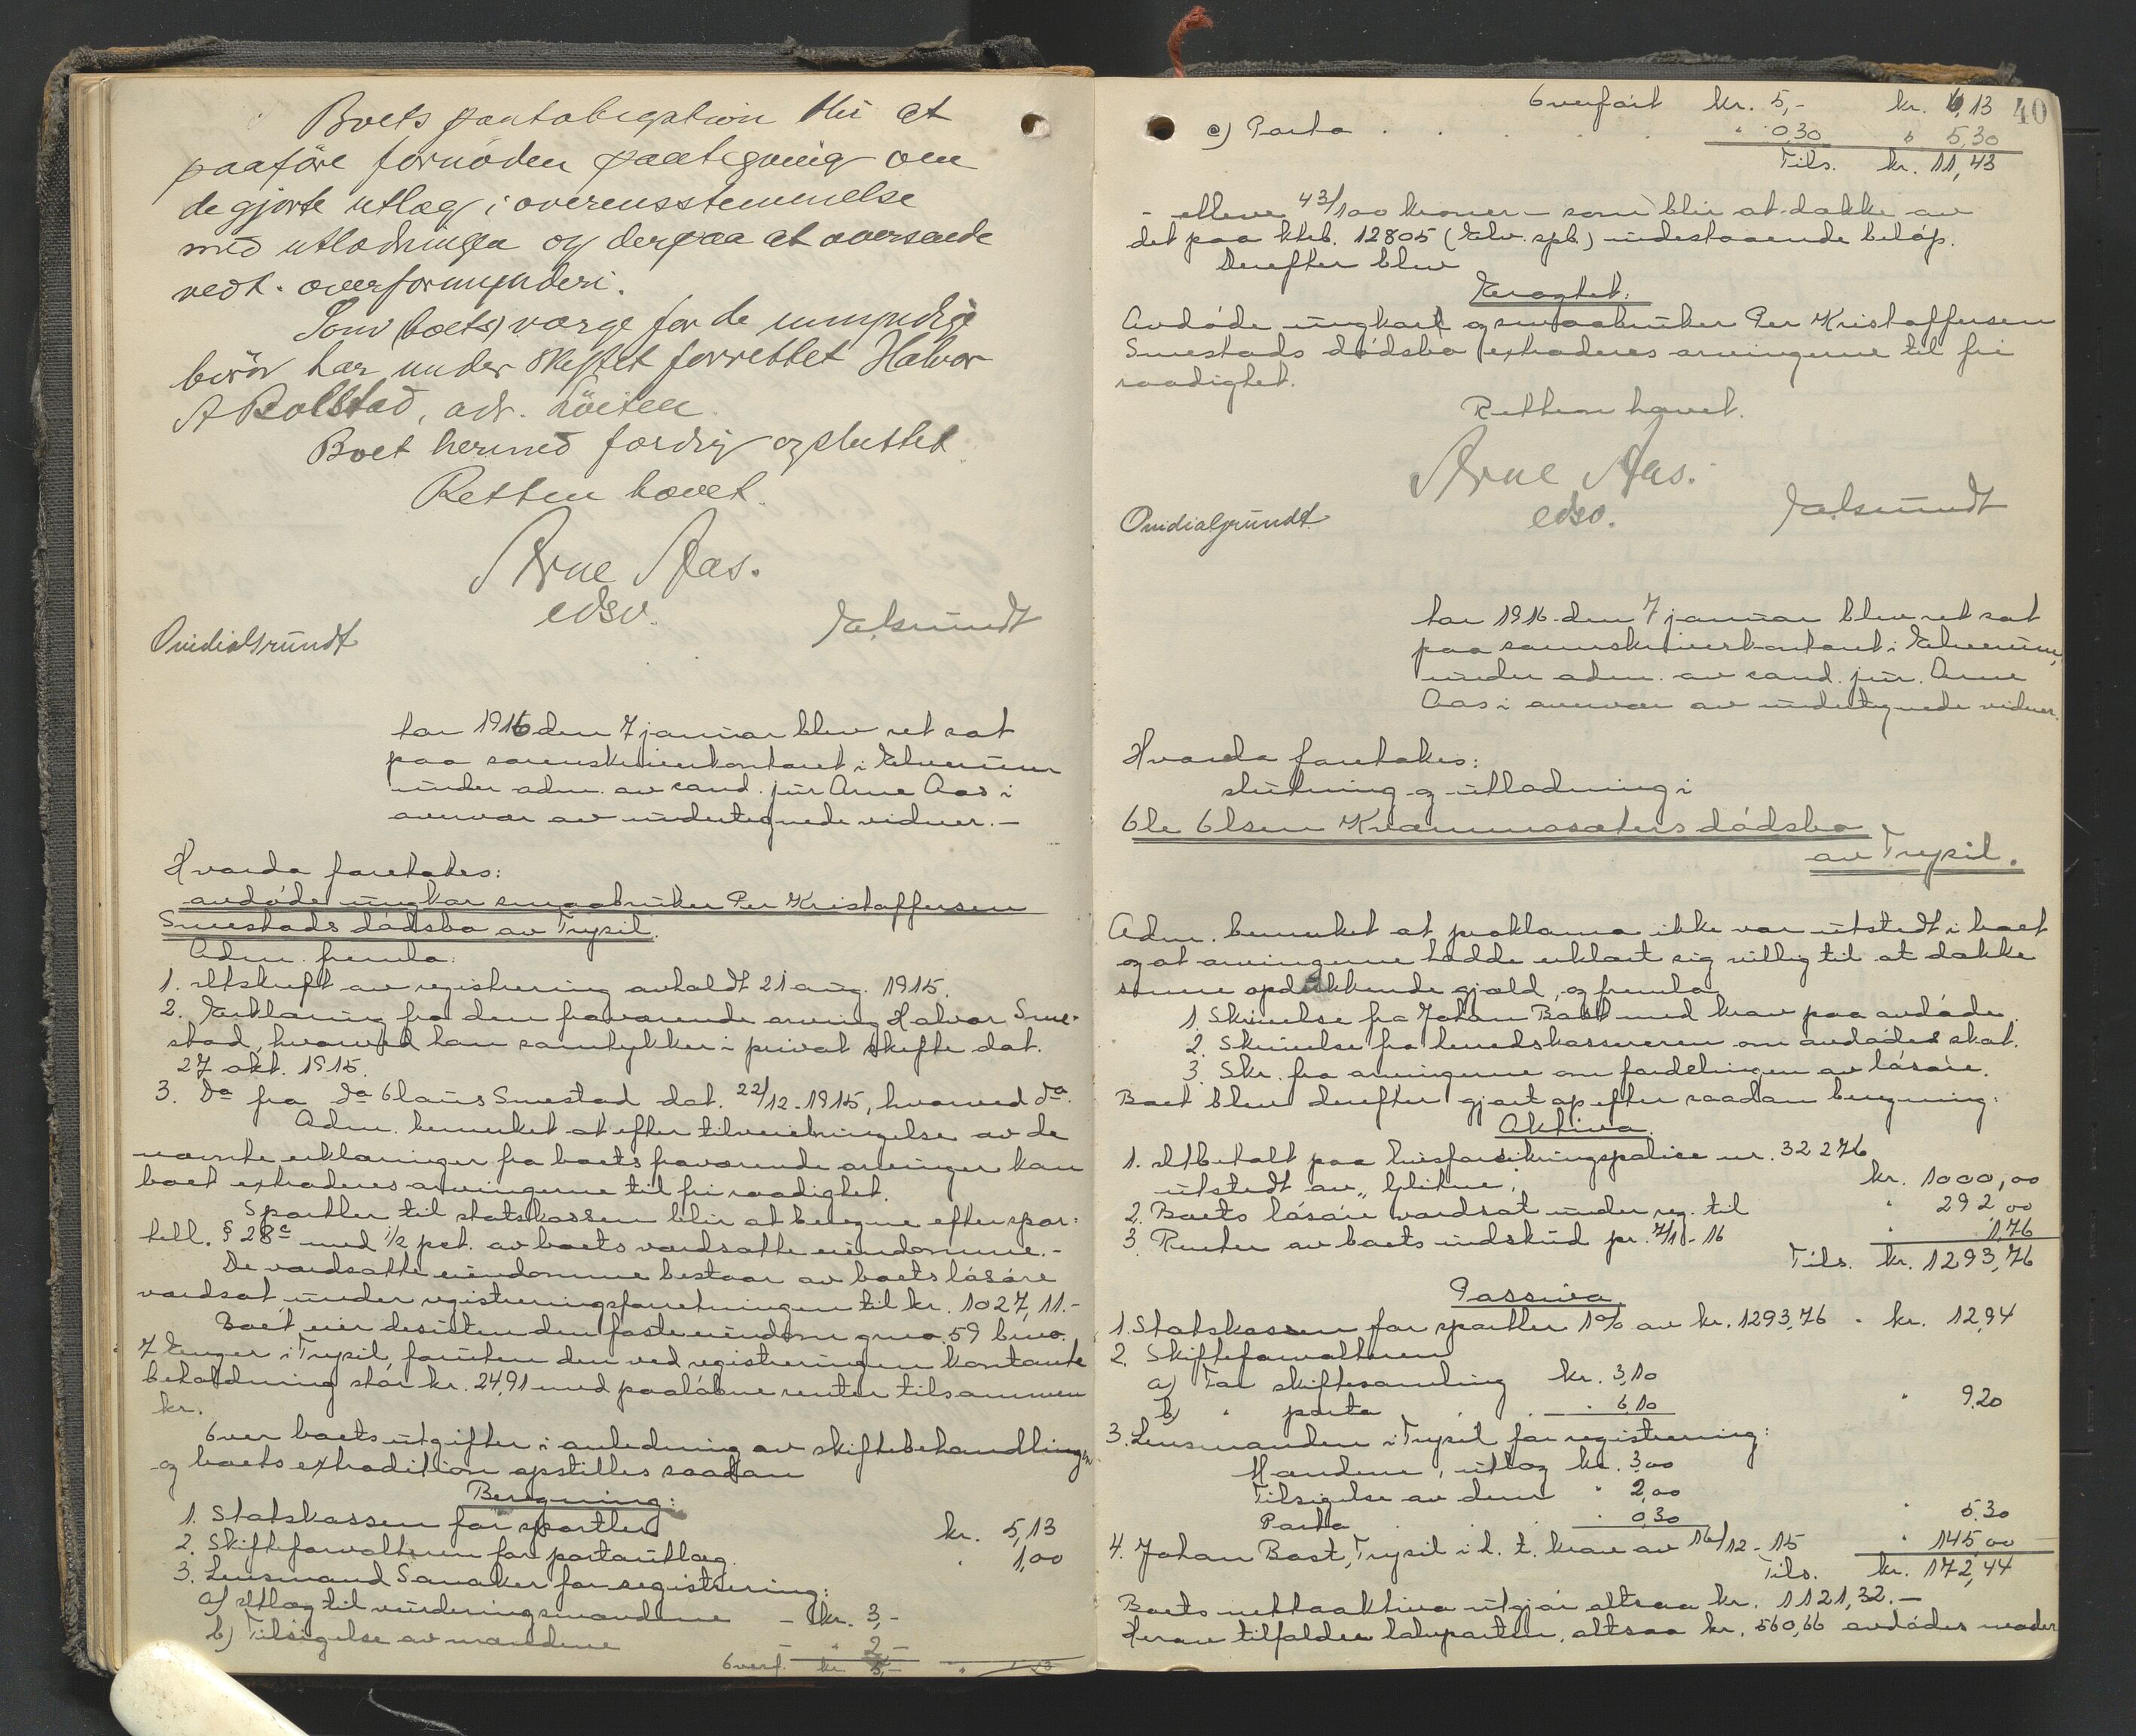 Boets pantobligation blir at
paaföre fornöden paategning om
de gjorte utlæg i overensstemmelse
med utlodningen og derpaa at oversende
vedk. overformynderi.
Som (boets) værge for de umyndige
börn har under skiftet forrettet Halvor
A Bolstad, adr. Löiten.
Boet hermed færdig og sluttet.
Retten hævet.
Arne Aas.
edsv.
Ovidia Grundt
Aar 1916 den 7 januar blev ret sat
paa sorenskriverkontoret i Elverum
under adm. av cand. jur Arne Aas i
overvær av undertegnede vidner.-
Hvorda foretokes:
avdøde ungkar smaabruker Per Kristoffersen
Smestads dødsbo av Trysil.
Adm. fremla:
1. Utskrift av registrering avholdt 21 aug. 1915.
2. Erklæring fra den fraværende arving Halvor Sme-
stad, hvorved han samtykker i privat skifte dat.
27 okt. 1915.
3. Do fra do Olaus Smestad dat. 22/12-1915, hvorved do.
Adm. bemerket at efter tilveiebringelse av de
nævnte erklæringer fra boets fraværende arvinger kan
boet extraderes arvingerne til fri raadighet.
Sportler til statskassen blir at beregne efter spor-
tell. § 28c med 1/2 pct. av boets værdsatte eiendomme.-
De værdsatte eiendomme bestaar av boets løsøre
værdsat under registreringsforretningen til kr. 1027,11.-
Boet eier desuten den faste eiendom gno. 59 bno.
7 Enger i Trysil, foruten den ved registreringen kontante
beholdning stor kr. 24,91 med paaløbne renter tilsammen
kr.
Over boets utgifter i anledning av skiftebehandlingen
og boets extradition opstilles saadan
Beregning:
1. Statskassen for sportler kr. 5,13
2. Skifteforvalteren for portoutlæg. " 1,00
3. Lensmand Sanaker for registrering:
a) Utlæg til vurderingsmændene - kr. 3,-
b) Tilsigelse av mændene - " 2,-
Overf. kr. 5,-
40
Overført kr. 5,- kr. 6,13
c) Porto . . . . . " 0,30 " 5,30
Tils. kr. 11,43
- elleve 43/100 kroner - som blir at dække av
det paa ktrb. 12805 (Elv. spb.) indestaaende beløp.
Derefter blev
Eragtet:
Avdøde ungkarl og smaabruker Per Kristoffersen
Smestads dødsbo extraderes arvingerne til fri
raadighet.
Retten hævet.
Arne Aas.
edsv.
Ovidia Grundt
Aar 1916 den 7 januar blev ret sat
paa sorenskriverkontoret i Elverum,
under adm. av cand. jur. Arne
Aas i overvær av undertegnede vidner.
Hvorda foretokes:
slutning og utlodning i
Ole Olsen Kvæmmosæters dødsbo
av Trysil.
Adm. bemerket at proklama ikke var utstedt i boet
og at arvingerne hadde erklært sig villig til at dække
senere opdukkende gjæld, og fremla
1. Skrivelse fra Johan Bast med krav paa avdøde.
2. Skrivelse fra herredskassereren om avdødes skat.
3. Skr. fra arvingerne om fordelingen av løsøre.
Boet blev derefter gjort op efter saadan beregning:
Aktiva.
1. Utbetalt paa livsforsikringspolice nr. 32276
utstedt av "Glitne". kr. 1000,00
2. Boets løsøre værdsat under reg. til " 292 00
3. Renter av boets indskud pr. 7/1-16 " 1,76
Tils. kr. 1293,76
Passiva.
1. Statskassen for sportler 1% av kr. 1293,76 . kr. 12,94
2. Skifteforvalteren
a) For skiftesamling kr. 3,10
b) " porto . . " 6.10 " 9.20
3. Lensmanden i Trysil for registrering:
Mændene, utlæg kr. 3,00
Tilsigelse av dem " 2,00
Porto . . " 0,30 " 5.30
4. Johan Bast, Trysil i h. t. krav av 16/12-15 " 145 00
Tils. kr. 172,44
Boets nettoaktiva utgjør altsaa kr. 1121,32.-
Herav tilfalder halvparten, altsaa kr. 560,66 avdødes moder